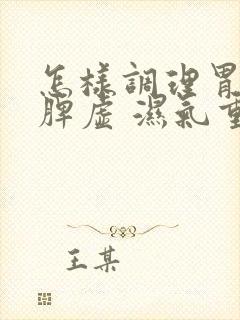 怎樣調理
脾虛 濕氣
王某